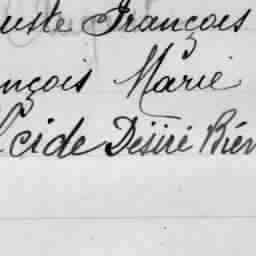 uste François
nçois Marie
cide Désiré Bien